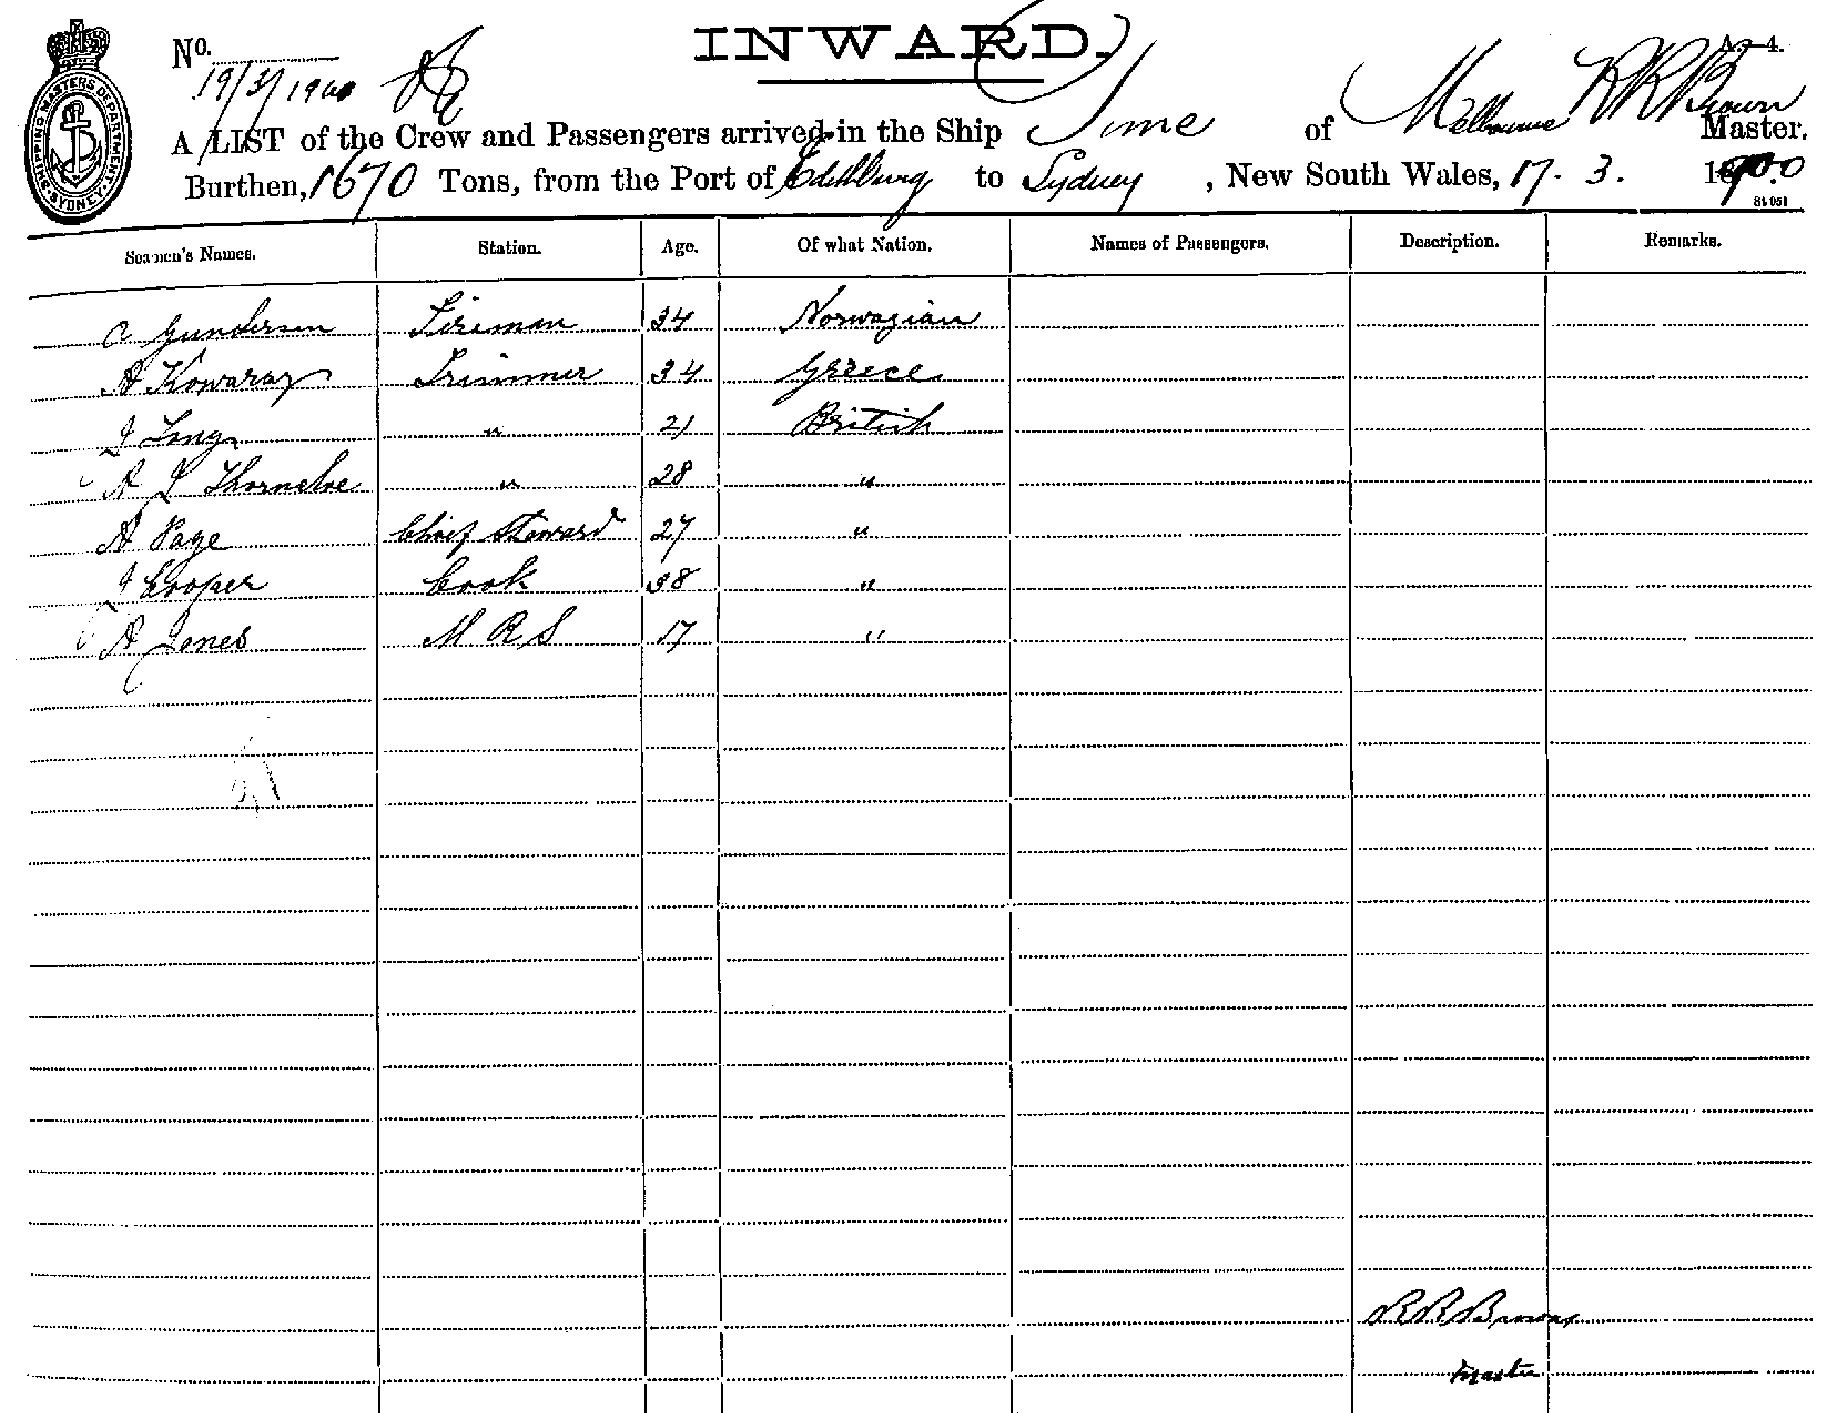 INWARD.
No.
A.—4.
19/3/1900
A LIST of the Crew and Passengers arrived in the Ship Time of Melbourne R R Brown Master.
Burthen, 1670 Tons, from the Port of Edithburg to Sydney, New South Wales, 17. 3. 1900
84 051
SHIPPING MASTERS DEPARTMENT SYDNEY
Seamen's Names. Station. Age. Of what Nation. Names of Passengers. Description. Remarks.
C Gundersen Fireman 34 Norwagian
A Kowaray Trimmer 34 Greece
J Long " 21 British
A L Thorneloe " 28 "
A Page Chief Steward 27 "
J Cooper Cook 38 "
A Jones M R S 17 "
R R Brown
Master